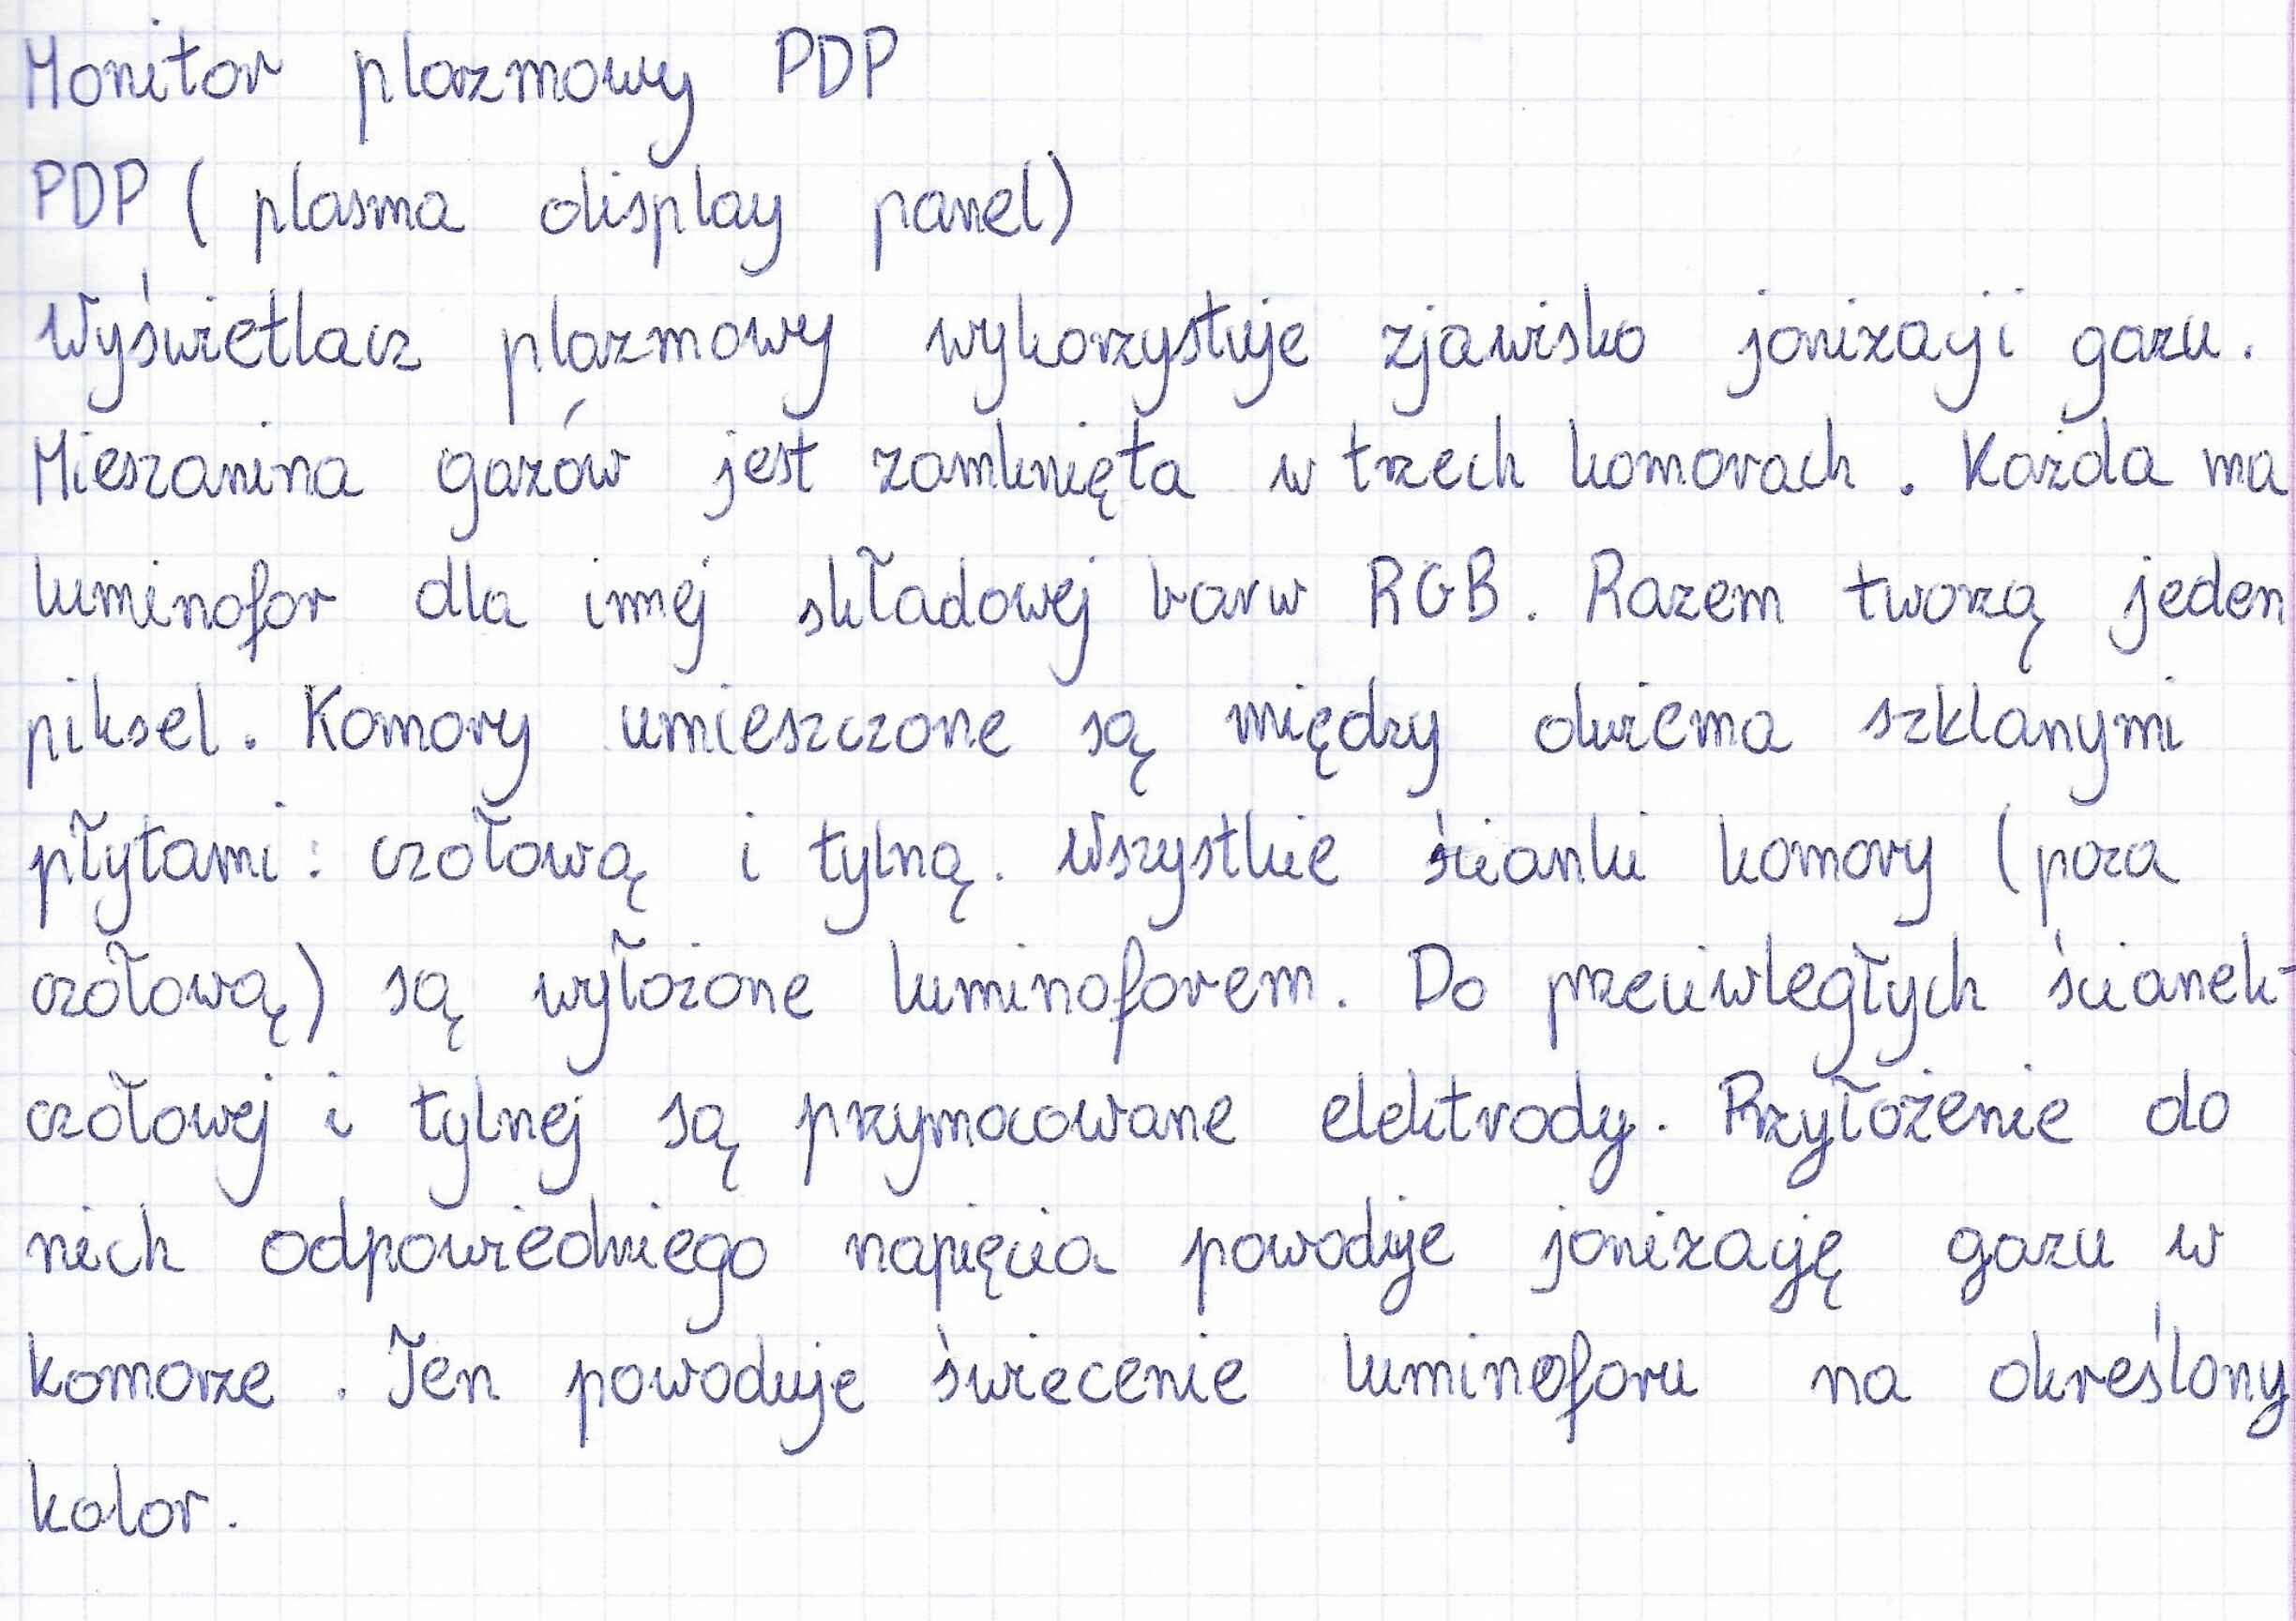 Monitor plazmowy PDP
PDP ( plasma display panel)
Wyświetlacz plazmowy wykorzystuje zjawisko jonizacji gazu.
Mieszanina gazów jest zamknięta w trzech komorach. Każda ma
luminofor dla innej składowej barw RGB. Razem tworzą jeden
piksel. Komory umieszczone są między dwiema szklanymi
płytami: czołową i tylną. Wszystkie ścianki komory (poza
czołową) są wyłożone luminoforem. Do przeciwległych ścianek-
czołowej i tylnej są przymocowane elektrody. Przyłożenie do
nich odpowiedniego napięcia powoduje jonizację gazu w
komorze. Ten powoduje świecenie luminoforu na określony
kolor.